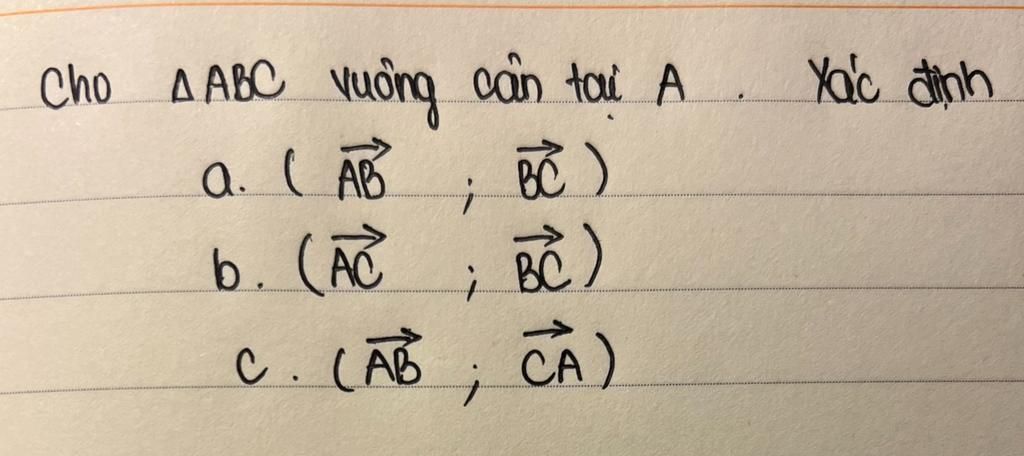 Cho ΔABC vuông cân tại A . Xác định
a. ( $\overrightarrow{AB}$ ; $\overrightarrow{BC}$ )
b. ( $\overrightarrow{AC}$ ; $\overrightarrow{BC}$ )
c. ( $\overrightarrow{AB}$ ; $\overrightarrow{CA}$ )